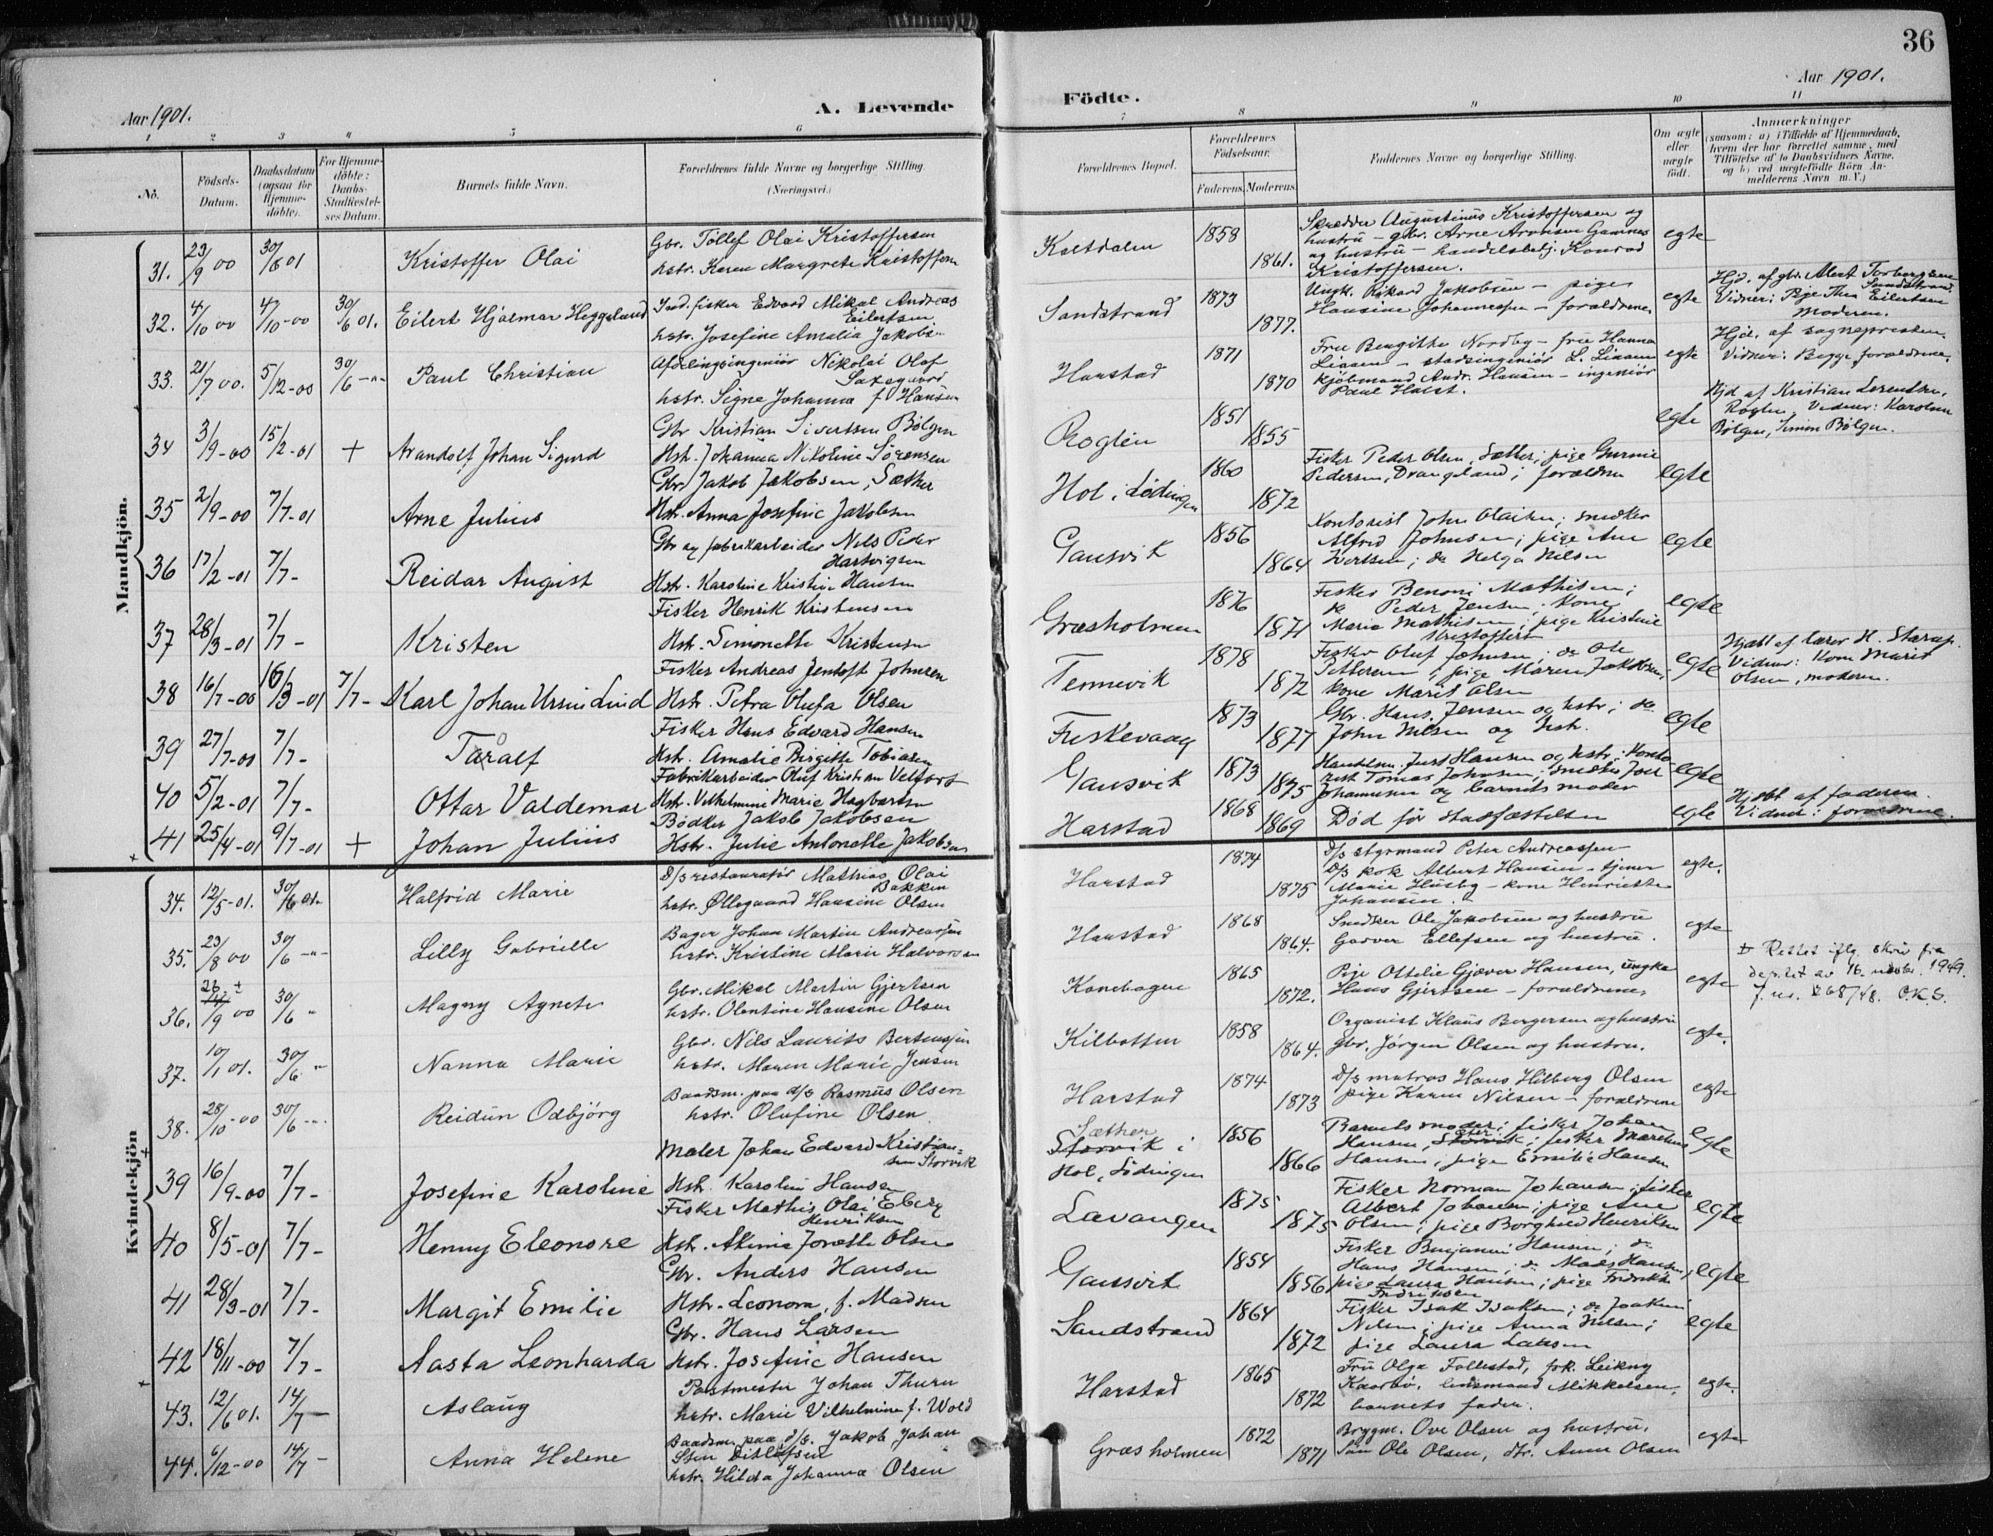 36
Aar 1901.
A. Levende
Födte.
Aar 1901.
1 2 3 4 5 6
7 8 9 10 11
No.
Födsels-
Datum.
Daabsdatum
(ogsaa for
Hjemme-
döbte).
For Hjemme-
döbte:
Daabs-
Stadfæstel-
ses Datum.
Barnets fulde Navn.
Forældrenes fulde Navne og borgerlige Stilling.
(Næringsvei.)
Forældrenes Bopæl.
Forældrenes
Födselsaar.
Faderens.
Moderens.
Faddernes Navne og borgerlige Stilling.
Om ægte
eller
uægte
födt.
Anmærkninger
(saasom: a) i Tilfælde af Hjemmedaab,
hvem der har forrettet samme, med
Tilföielse af to Daabsvidners Navne,
og b) ved uægtefödte Börn An-
melderens Navn m. V.)
Mandkjön.
31. 23/9 00 30/6 01 Kristoffer Olai
Gbr. Tollef Olai Kristoffersen
hstr. Karen Margrete Kristoffersen
Kasfdalen 1858 1861.
Skrædder Augustinus Kristoffersen og
hustru - gbr. Arne Aronsen Gamnes
og hustru - handelsbetj. Konrad
Kristoffersen.
egte
32. 4/10 00 4/10-00 30/6 01. Eilert Hjalmar Heggelund
Ind. fisker Edvard Mikal Andreas
Eilertsen
hstr. Josefine Amalia Jakobs-
Sandstrand 1873 1877.
Ungk. Rikard Jakobsen - pige
Hansine Johannessen - forældrene
egte
Hjd. af gbr. Alert Torbergsen
Sandstrand
Vidner: Pige Thea Eilertsen
Moderen.
33. 21/7 00. 5/12-00 30/6 -"- Paul Christian
Afdelingsingeniör Nikolai Olaf
Saxegaard
hstr. Signe Johanna f. Hansen
Harstad 1871 1870
Frue Bengitte Nordby - frue Hanna
Linaae - stadsingeniör L. Linaae
kjöbmand Andr. Hansen - ingeniör
Paul Holst.
egte
Hjd. af sognepresten
Vidner: Begge forældrene.
34 3/9-00 15/2-01 + Arandolf Johan Sigurd
Gbr Kristian Sivertsen Bölgen
Hst. Johanna Nikoline Sörensen
Roglen 1851 1855
egte
Hjd af Kristian Lorentsen,
Roglen. Vidner: Karoline
Bölgen, Simon Bölgen.
35 2/9-00 7/7-01 Arne Julius
Gbr Jakob Jakobsen, Sæther
Hstr. Anna Josefine Jakobsen
Hol i Lödingen 1860 1872
Fisker Peder Olsen, Sæther; pige Gurine
Pedersen, Drangeland; forældrene
egte
36 17/2-01 7/7- Reidar August
Gbr og fabrikarbeider Nils Peder
Hartvigsen
Hstr. Karoline Kristine Hansen
Gausvik 1856 1864
Kontorist John Olaisen; snedker
Alfred Johnsen; pige Ane
Ivertsen; do Helga Nilsen
egte
37 28/3-01 7/7- Kristen
Fisker Henrik Kristensen
Hstr. Simonette Kristensen
Græsholmen 1876 1871
Fisker Benoni Mathisen;
Peder Jensen; kone
Maria Mathisen; pige Kristine
Kristoffers
egte
38 16/7-00 16/3-01 7/7- Karl Johan Ursin Lind
Fisker Andreas Jentoft Johnsen
Hstr. Petra Olufa Olsen
Tennevik 1878 1872
Fisker Oluf Johnsen; do Ole
Pettersen; pige Maren Jakobsen,
kone Marit Olsen
egte
Hjdbt af lærer H. Starup.
Vidner: Kone Marit
Olsen, moderen.
39 27/7-00 7/7- Taralf
Fisker Hans Edvard Hansen
Hstr. Amalie Birgitte Tobiasen
Fiskevaag 1873 1877
Gbr. Hans Jensen og hstr; do
John Nilsen og hstr.
egte
40 5/2-01 7/7- Ottar Valdemar
Fabrikarbeider Oluf Kristian Velfort
Hstr. Vilhelmine Marie Hagbartsen
Gausvik 1873 1875
Handelsm. Just Hansen og hstr; Konto-
rist Tomas Johnsen; snedker Joel
Johannesen og barnets moder
egte
41 25/4-01 9/7-01 + Johan Julius
Bödker Jakob Jakobsen
Hstr. Julie Antonette Jakobsen
Harstad 1868 1869
Död för stadfæstelsen
egte
Hjdbt af faderen.
Vidner: forældrene.
Kvindekjön
34. 12/5-01. 30/6 01.- Halfrid Marie
D/s restauratör Mathias Olai
Bakken
hstr. Øllegaard Hansine Olsen
Harstad 1874 1875
D/s styrmand Peter Andreassen -
D/s kok Albert Hansen - tjener
Marie Husby - kone Henriette
Johansen.
egte.
35. 23/8 00 30/6 -"- Lilly Gabrielle
Bager Johan Martin Andreassen
hstr. Kristine Marie Halvorsen
Harstad 1868 1864.
Snedker Ole Jakobsen og hustru
Garver Ellefsen og hustru.
egte
36. 26/9 00 30/6 " Magny Agnete
Gbr. Mikal Martin Gjertsen
hstr. Olentine Hansine Olsen
Kanebogen 1865 1872.
Pige Ottilie Gjæver Hansen, ungka
Hans Gjertsen - forældrene.
egte
Rettet iflg. skriv fra
dep.tet av 16. 1949.
J.nr. 268/48. O.K.S.
37. 10/1 01. 30/6 " Nanna Marie
Gbr. Nils Laurits Bertensen
hstr. Maren Marie Jensen
Kilbotten 1858 1864.
Organist Klaus Borgersen og hustru
Gbr. Jörgen Olsen og hustru.
egte.
38. 28/10-00 30/6 -"- Reidun Odbjörg
Baadsm. paa d/s Rasmus Olsen
hstr. Olufine Olsen.
Harstad 1874 1873
D/s matros Hans Hilberg Olsen
pige Karen Nilsen - forældrene
egte
39 16/9-00 7/7- Josefine Karoline
Maler Johan Edvard Kristian-
sen Storvik
Hstr. Karoline Hansen
Sæther
Storvik i
Hol, Lödingen 1856 1866
Barnets moder; fisker Johan
Hansen, Storvik; fisker Martinus
Hansen; pige Emilie Hansen
egte
40 8/5-01 7/7- Henny Eleonore
Fisker Mathis Olai Eberg
Henriksen
Hstr. Akima Jonette Olsen
Lavangen 1875 1875
Fisker Norman Johansen; fisker
Albert Johansen; pige Ane
Olsen; pige Borghild Henriksen
egte
41 28/3-01 7/7- Margit Emilie
Gbr. Anders Hansen
Hstr. Leonora, f. Madsen
Gausvik 1854 1856
Fisker Benjamin Hansen; do
Hans Hansen; do Mads Hansen;
pige Laura Hansen; pige Fredrikke
Fredriksen
egte
42 18/11-00 7/7- Aasta Leonharda
Gbr. Hans Larsen
Hstr. Josefine Hansen
Sandstrand 1864 1872
Fisker Isak Isaksen; do Joakim
Nilsen; pige Anna Nilsen;
pige Laura Larsen
egte
43. 12/6 01. 14/7 - Aslaug
Postmester Johan Thurn
hstr. Marie Vilhelmine f. Wold
Harstad 1865 1872
Fru Olga Follestad, frk. Leikny
Kaarbö, lensmand Mikkelsen,
barnets fader.
egte.
44. 6/12-00 14/7 - Anna Helene
Baadsm. paa d/s. Jakob Johan
Sten Ditlefsen
hstr. Hilda Johanna Olsen
Græsholmen 1872 1871
Brygm. Ove Olsen og hustru,
Sön Ole Olsen, dtr. Anne Olsen
egte